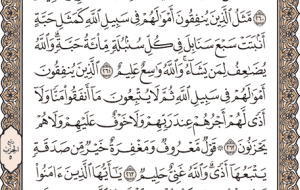 ٢٦٠ مَّثَلُ ٱلَّذِينَ يُنفِقُونَ أَمْوَٰلَهُمْ فِى سَبِيلِ ٱللَّهِ كَمَثَلِ حَبَّةٍ
أَنۢبَتَتْ سَبْعَ سَنَابِلَ فِى كُلِّ سُنۢبُلَةٍ مِّا۟ئَةُ حَبَّةٍ وَٱللَّهُ
يُضَٰعِفُ لِمَن يَشَآءُ وَٱللَّهُ وَٰسِعٌ عَلِيمٌ ٢٦١ ٱلَّذِينَ يُنفِقُونَ
أَمْوَٰلَهُمْ فِى سَبِيلِ ٱللَّهِ ثُمَّ لَا يُتْبِعُونَ مَآ أَنفَقُوا۟ مَنًّا وَلَآ
أَذًى لَّهُمْ أَجْرُهُمْ عِندَ رَبِّهِمْ وَلَا خَوْفٌ عَلَيْهِمْ وَلَا هُمْ
يَحْزَنُونَ ٢٦٢ قَوْلٌ مَّعْرُوفٌ وَمَغْفِرَةٌ خَيْرٌ مِّن صَدَقَةٍ
يَتْبَعُهَآ أَذًى وَٱللَّهُ غَنِىٌّ حَلِيمٌ ٢٦٣ يَٰٓأَيُّهَا ٱلَّذِينَ ءَامَنُوا۟